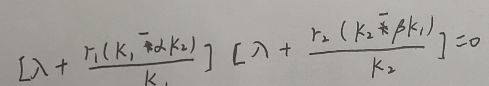 [λ + \frac{r_1(K_1 - αK_2)}{K_1}] [λ + \frac{r_2(K_2 - βK_1)}{K_2}] = 0